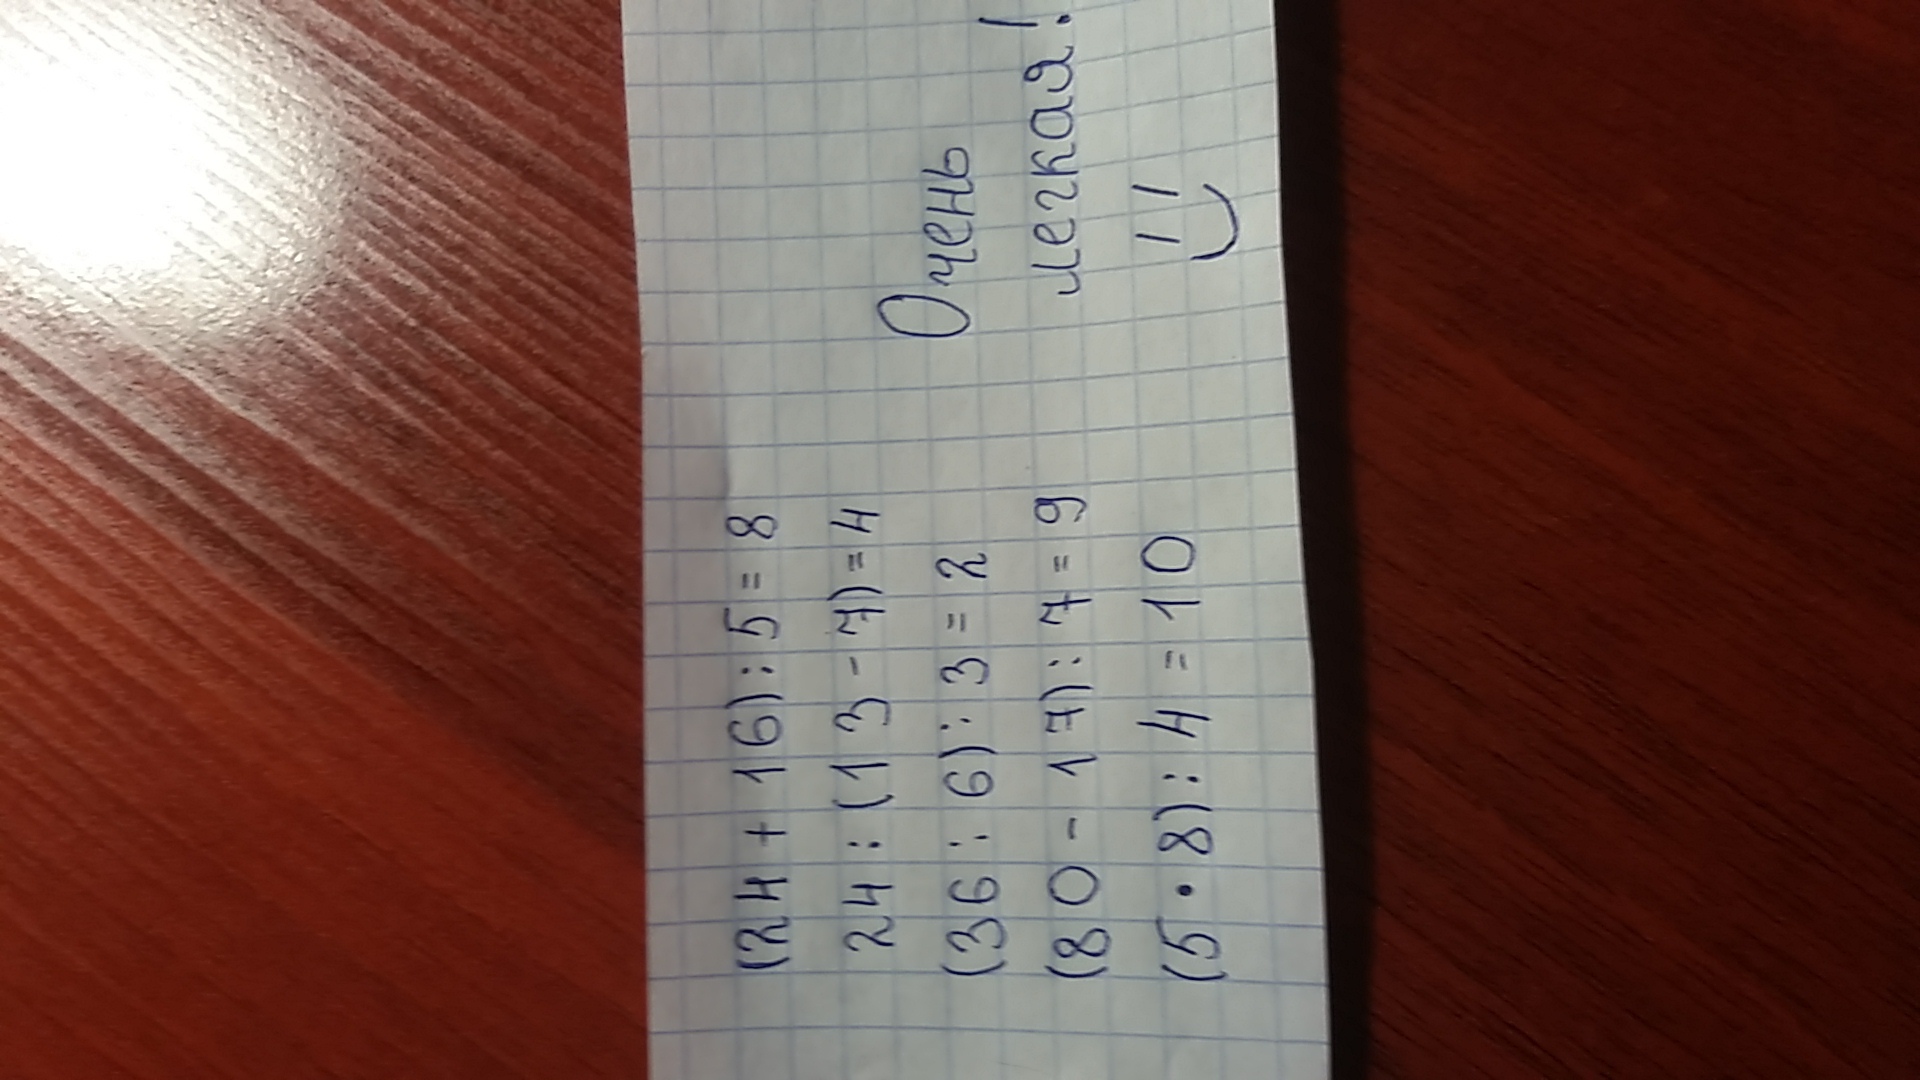 (24 + 16) : 5 = 8
24 : (13 - 7) = 4
(36 : 6) : 3 = 2
(80 - 17) : 7 = 9
(5 · 8) : 4 = 10
Очень
легкая!